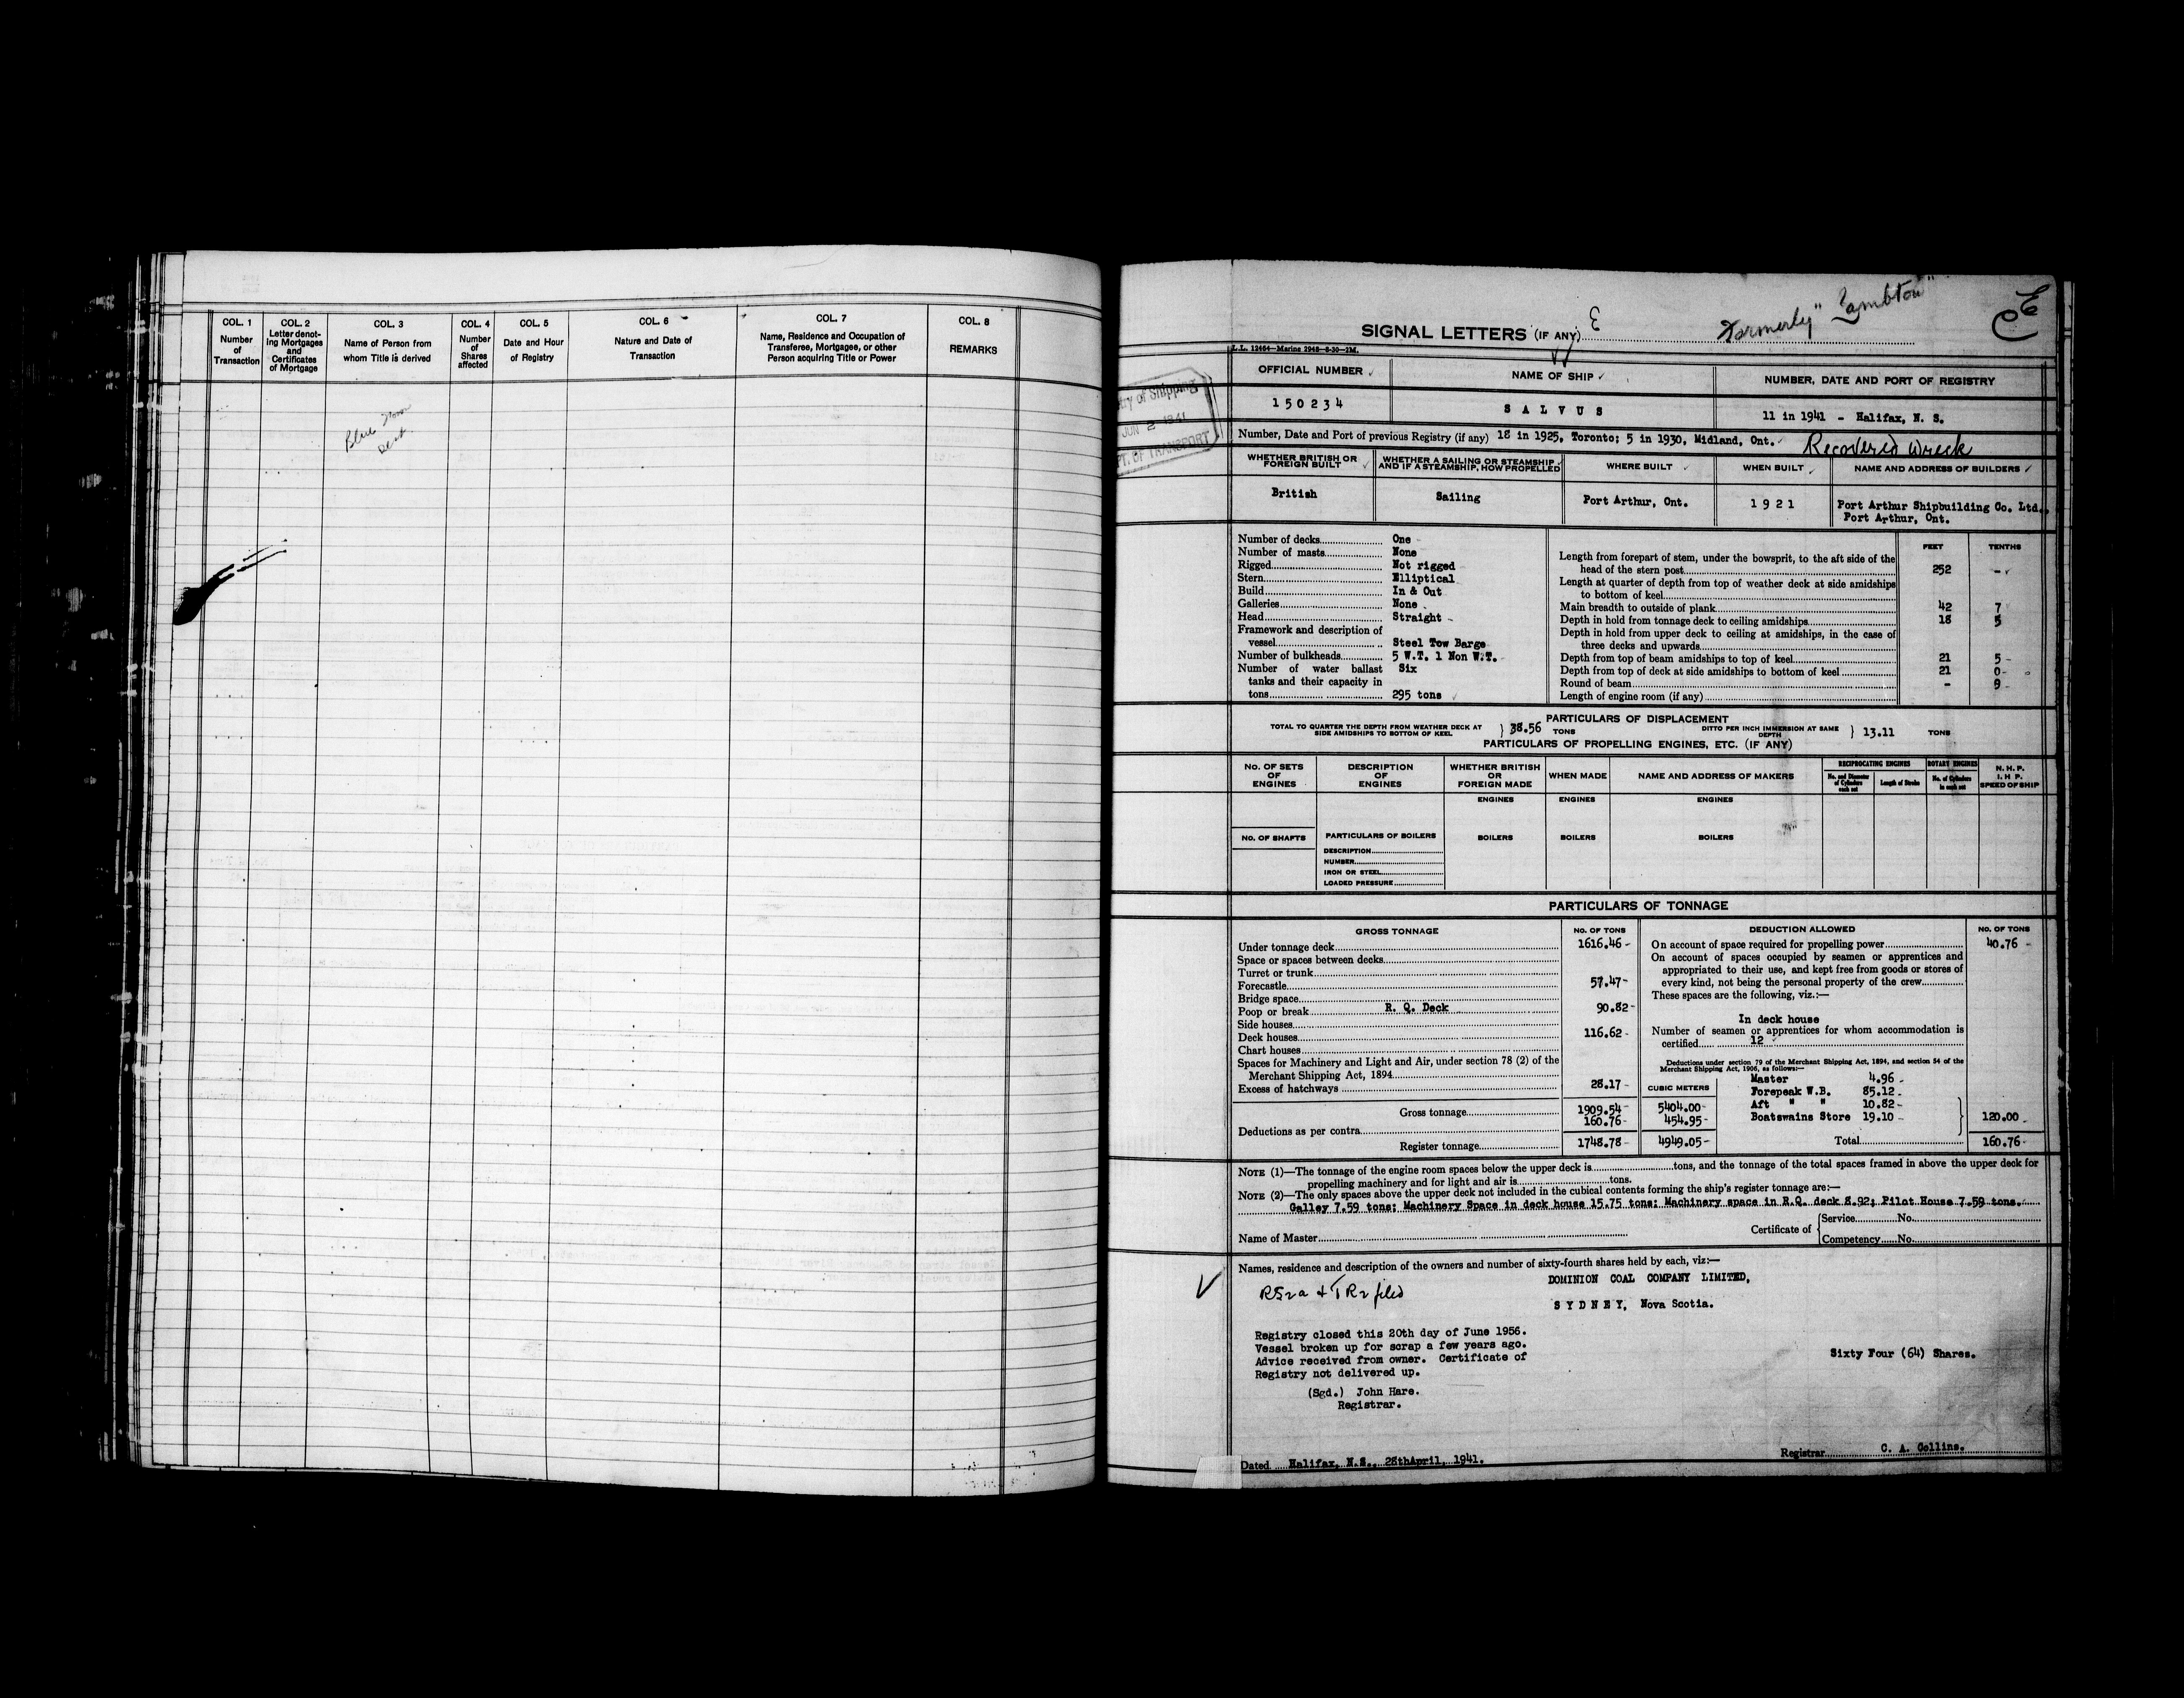 COL. 1
Number
of
Transaction
COL. 2
Letter denot-
ing Mortgages
and
Certificates
of Mortgage
COL. 3
Name of Person from
whom Title is derived
COL. 4
Number
of
Shares
affected
COL. 5
Date and Hour
of Registry
COL. 6
Nature and Date of
Transaction
COL. 7
Name, Residence and Occupation of
Transferee, Mortgagee, or other
Person acquiring Title or Power
COL. 8
REMARKS
Blue
SIGNAL LETTERS (IF ANY) E
Formerly "Lambton"
L.L. 12464—Marine 2948—8-30—2M.
OFFICIAL NUMBER
NAME OF SHIP
NUMBER, DATE AND PORT OF REGISTRY
150234
SALVUS
11 in 1941 - Halifax, N. S.
try of Shipping
JUN 2 1941
PT. OF TRANSPORT
Number, Date and Port of previous Registry (if any) 18 in 1925, Toronto; 5 in 1930, Midland, Ont.
Recovered Wreck
WHETHER BRITISH OR
FOREIGN BUILT
WHETHER A SAILING OR STEAMSHIP
AND IF A STEAMSHIP, HOW PROPELLED
WHERE BUILT
WHEN BUILT
NAME AND ADDRESS OF BUILDERS
British
Sailing
Port Arthur, Ont.
1921
Port Arthur Shipbuilding Co. Ltd.,
Port Arthur, Ont.
Number of decks One
Number of masts None
Rigged Not rigged
Stern Elliptical
Build In & Out
Galleries None
Head Straight
Framework and description of
vessel Steel Tow Barge
Number of bulkheads 5 W.T. 1 Non W.T.
Number of water ballast Six
tanks and their capacity in
tons 295 tons
FEET TENTHS
Length from forepart of stem, under the bowsprit, to the aft side of the
head of the stern post 252 -
Length at quarter of depth from top of weather deck at side amidships
to bottom of keel
Main breadth to outside of plank 42 7
Depth in hold from tonnage deck to ceiling amidships 18 5
Depth in hold from upper deck to ceiling at amidships, in the case of
three decks and upwards
Depth from top of beam amidships to top of keel 21 5
Depth from top of deck at side amidships to bottom of keel 21 0
Round of beam - 9
Length of engine room (if any)
PARTICULARS OF DISPLACEMENT
TOTAL TO QUARTER THE DEPTH FROM WEATHER DECK AT
SIDE AMIDSHIPS TO BOTTOM OF KEEL } 38.56 TONS
DITTO PER INCH IMMERSION AT SAME
DEPTH } 13.11 TONS
PARTICULARS OF PROPELLING ENGINES, ETC. (IF ANY)
NO. OF SETS
OF
ENGINES
DESCRIPTION
OF
ENGINES
WHETHER BRITISH
OR
FOREIGN MADE
WHEN MADE
NAME AND ADDRESS OF MAKERS
RECIPROCATING ENGINES
No. and Diameter
of Cylinders
each set
Length of Stroke
ROTARY ENGINES
No. of Cylinders
in each set
N. H. P.
I. H. P.
SPEED OF SHIP
ENGINES
ENGINES
ENGINES
NO. OF SHAFTS
PARTICULARS OF BOILERS
BOILERS
BOILERS
BOILERS
DESCRIPTION
NUMBER
IRON OR STEEL
LOADED PRESSURE
PARTICULARS OF TONNAGE
GROSS TONNAGE
NO. OF TONS
Under tonnage deck 1616.46
Space or spaces between decks
Turret or trunk
Forecastle 57.47
Bridge space
Poop or break R. Q. Deck 90.82
Side houses
Deck houses 116.62
Chart houses
Spaces for Machinery and Light and Air, under section 78 (2) of the
Merchant Shipping Act, 1894
Excess of hatchways 28.17
CUBIC METERS
Gross tonnage 1909.54 5404.00
Deductions as per contra 160.76 454.95
Register tonnage 1748.78 4949.05
DEDUCTION ALLOWED
NO. OF TONS
On account of space required for propelling power 40.76
On account of spaces occupied by seamen or apprentices and
appropriated to their use, and kept free from goods or stores of
every kind, not being the personal property of the crew
These spaces are the following, viz.:—
In deck house
Number of seamen or apprentices for whom accommodation is
certified 12
Deductions under section 79 of the Merchant Shipping Act, 1894, and section 54 of the
Merchant Shipping Act, 1906, as follows:—
Master 4.96
Forepeak W.B. 85.12
Aft " " 10.82
Boatswains Store 19.10 } 120.00
Total 160.76
NOTE (1)—The tonnage of the engine room spaces below the upper deck is tons, and the tonnage of the total spaces framed in above the upper deck for
propelling machinery and for light and air is tons.
NOTE (2)—The only spaces above the upper deck not included in the cubical contents forming the ship's register tonnage are:—
Galley 7.59 tons; Machinery Space in deck house 15.75 tons; Machinery space in R.Q. deck 8.92; Pilot House 7.59 tons.
Name of Master
Certificate of { Service No.
Competency No.
Names, residence and description of the owners and number of sixty-fourth shares held by each, viz:—
DOMINION COAL COMPANY LIMITED,
SYDNEY, Nova Scotia.
filed
Registry closed this 20th day of June 1956.
Vessel broken up for scrap a few years ago.
Advice received from owner. Certificate of
Registry not delivered up.
(Sgd.) John Hare.
Registrar.
Sixty Four (64) Shares.
Dated Halifax, N.S., 28thApril, 1941.
Registrar C. A. Collins.